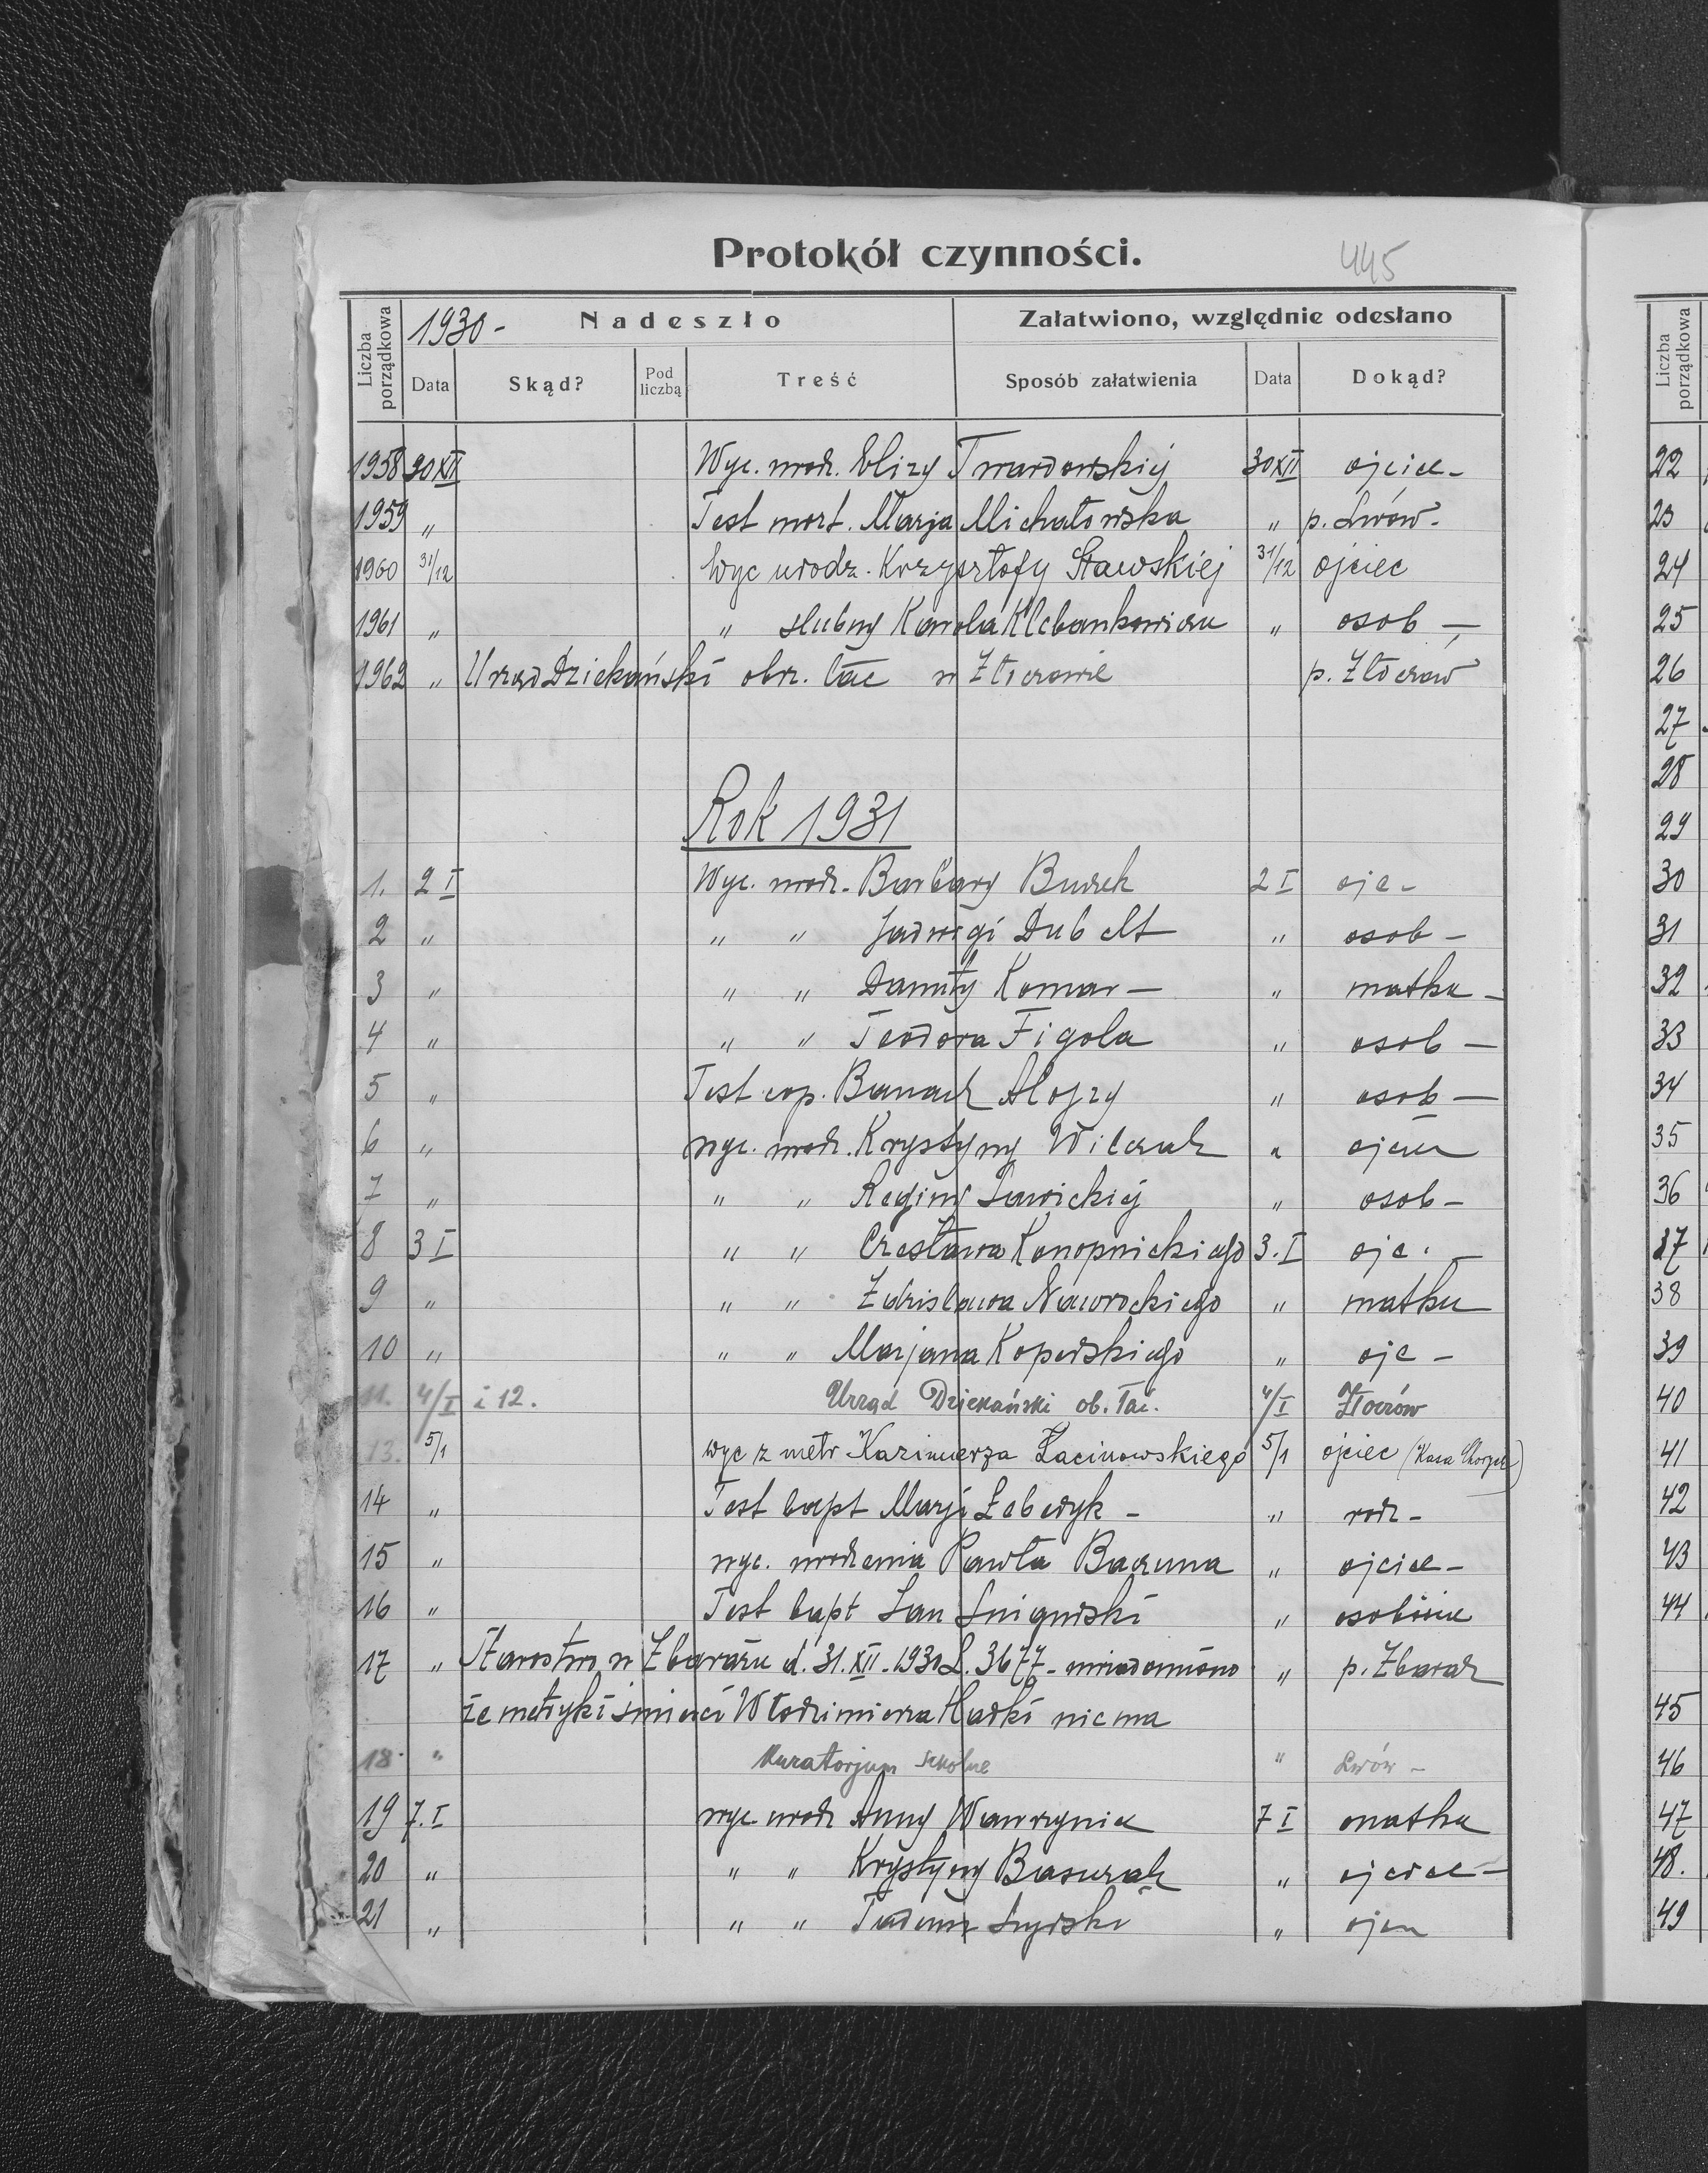 Protokół czynności.
445
Liczba porządkowa
1930-
Nadeszło
Załatwiono, względnie odesłano
Data
Skąd?
Pod liczbą
Treść
Sposób załatwienia
Data
Dokąd?
1958 30 XII Wyc. urodz. Elizy Twardowskiej 30 XII ojciec -
1959 " Test mort. Marja Michałowska " p. Lwów -
1960 31/12 Wyc urodz. Krzysztofy Stawskiej 31/12 ojciec
1961 " " slubny Karola Klebankowicza " osob —
1962 " Urząd Dziekański obrz. łac w Złoczowie p. Złoczów
Rok 1931
1. 2 I Wyc. urodz. Barbary 2 I ojc -
2 " " " Jadwigi Dubelt " osob -
3 " " " Danuty Komar — " matka -
4 " " " Teodora Figola " osob —
5 " Test cop. Banach Alojzy " osob —
6 " wyc. urodz. Krystyny Wilczek " ojciec
7 " " " Reginy Sawickiej " osob -
8 3 I " " Czesława Konopnickiego 3. I ojc. -
9 " " " Zdzisława Nawrockiego " matka
10 " " " Marjana Koperskiego " ojc -
11. 4/I i 12. Urząd Dziekański ob. łac. 4/I Złoczów
13. 5/1 wyc z metr Kazimierza Łacinowskiego 5/1 ojciec (Kasa Chorych)
14 " Test bapt Marji Łebedyk - " rodz -
15 " wyc. urodzenia Pawła Baczuna " ojciec -
16 " Test bapt Jan " osobiście
17 " Starostwo w Zbarażu d. 31. XII. 1930 L. 3677 - uwiadomiono " p. Zbaraż
że metryki śmierci Włodzimierza nie ma
18. " Kuratorjum szkolne " Lwów -
19 7. I wyc. urodz Anny Wawrzyniec 7 I matka
20 " " " Krystyny " ojciec -
21 " " " Tadeusz " ojciec
Liczba porządkowa
22
23
24
25
26
27
28
29
30
31
32
33
34
35
36
37
38
39
40
41
42
43
44
45
46
47
48.
49